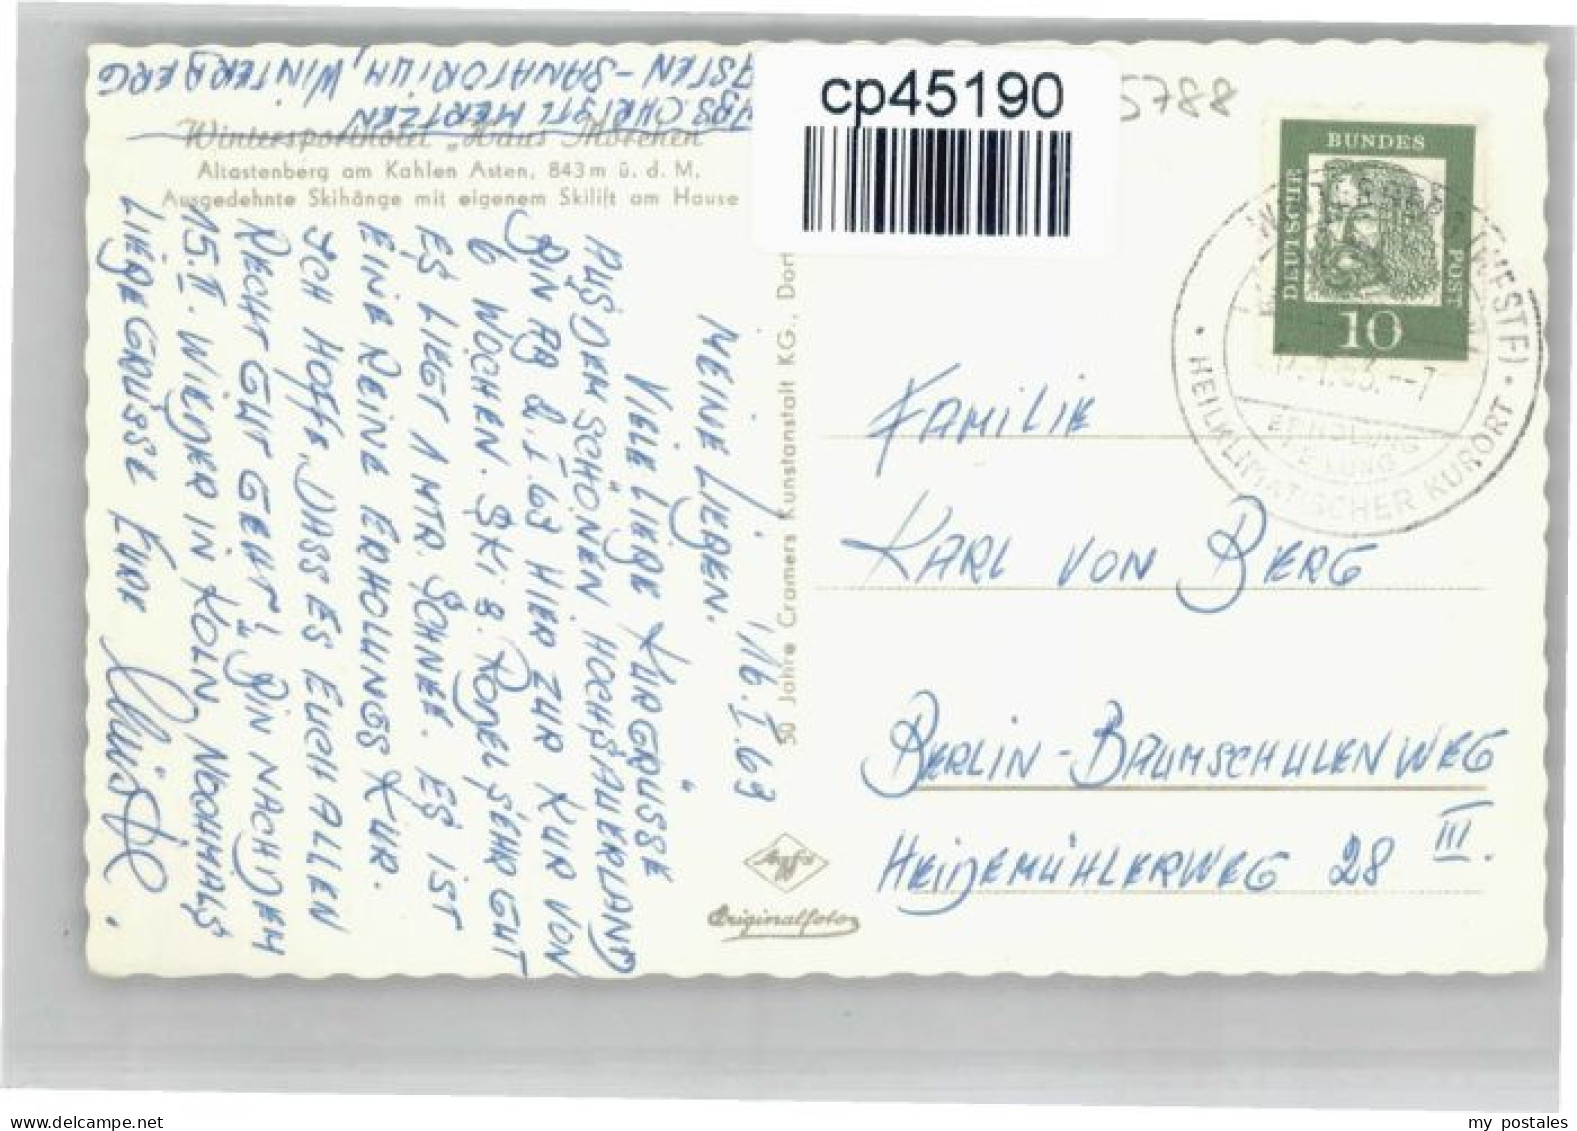 cp45190
5788
ASTEN - SANATORIUM, WINTERBERG
CHRISTL HERTZEN
Wintersporthotel „Haus Mörchen"
Altastenberg am Kahlen Asten, 843 m ü. d. M.
Ausgedehnte Skihänge mit eigenem Skilift am Hause
116. I. 63
MEINE LIEBEN.
VIELE LIEBE KURGRÜSSE
AUS DEM SCHÖNEN HOCHSAUERLAND
BIN AB 2. I. 63 HIER ZUR KUR VON
6 WOCHEN. SKI & RODEL SEHR GUT
ES LIEGT 1 MTR. SCHNEE. ES IST
EINE REINE ERHOLUNGSKUR.
ICH HOFFE, DASS ES EUCH ALLEN
RECHT GUT GEHT! BIN NACH DEM
15. II. WIEDER IN KÖLN, NOCHMALS
LIEBE GRÜSSE EURE
50 Jahre Cramers Kunstanstalt KG., Dort
Agfa
Originalfoto
DEUTSCHE
BUNDES
POST
10
(WESTF)
HEILKLIMATISCHER KURORT
FAMILIE
KARL VON BERG
BERLIN-BAUMSCHULENWEG
HEIDEMÜHLERWEG 28 III.
my postales